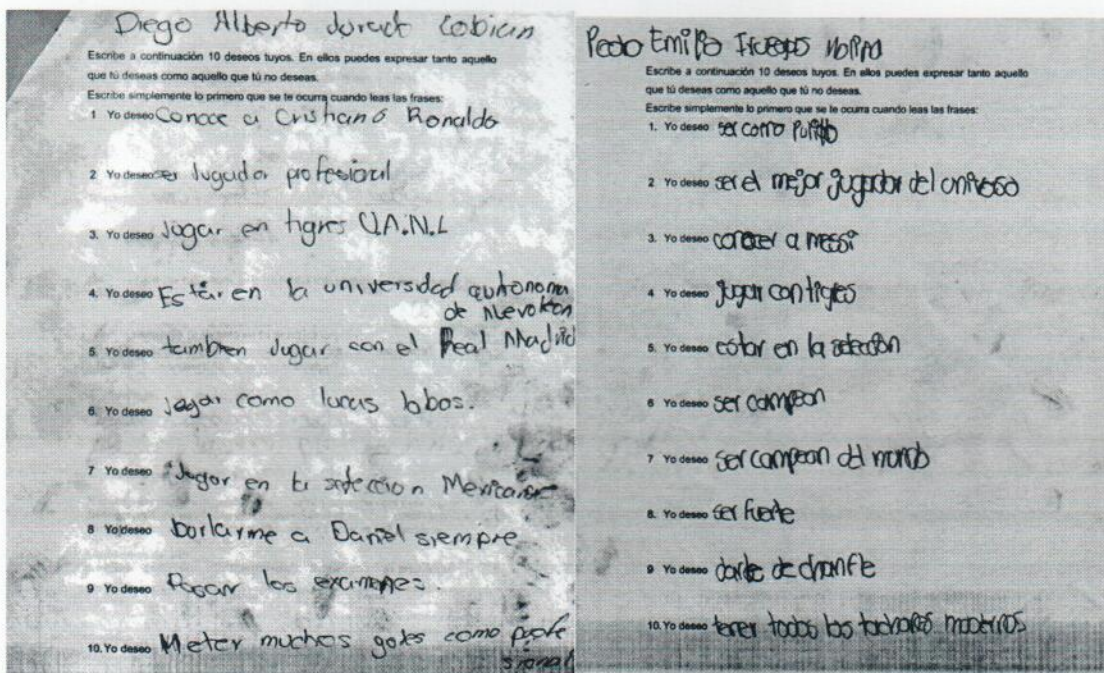 Diego Alberto Jurado Cobian
Escribe a continuación 10 deseos tuyos. En ellos puedes expresar tanto aquello
que tú deseas como aquello que tú no deseas.
Escribe simplemente lo primero que se te ocurra cuando leas las frases:
1 Yo deseo Conoce a Cristiano Ronaldo
2 Yo deseo ser Jugador profesional
3. Yo deseo Jogar en tigres U.A.N.L
4. Yo deseo Estar en la universidad autonoma
de
5. Yo deseo tambien Jugar con el Real Madrid
6. Yo deseo Jogar como lucas lobos.
7 Yo deseo Jugar en la seleccion Mexicana
8 Yo deseo borlarme a Daniel siempre
9 Yo deseo Pasar los examenes.
10. Yo deseo Meter muchos goles como profe
sional
Pedro Emilio
Escribe a continuación 10 deseos tuyos. En ellos puedes expresar tanto aquello
que tú deseas como aquello que tú no deseas.
Escribe simplemente lo primero que se te ocurra cuando leas las frases:
1. Yo deseo ser como
2 Yo deseo ser el mejor jugador del universo
3. Yo deseo conocer a messi
4 Yo deseo jugar con tigres
5. Yo deseo estar en la seleccion
6 Yo deseo ser campeon
7 Yo deseo ser campeon del mundo
8. Yo deseo ser fuerte
9 Yo deseo darle de chanfle
10. Yo deseo tener todos los